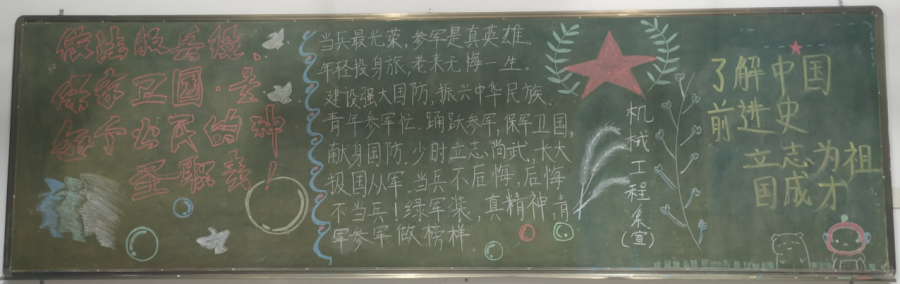 依法服兵役、
保家卫国·是
每个公民的神
圣职责！
当兵最光荣，参军是真英雄
年轻投身旅，老来无悔一生.
建设强大国防，振兴中华民族.
青年参军忙.踊跃参军，保军卫国，
献身国防.少时立志尚武，长大
报国从军.当兵不后悔，后悔
不当兵！绿军装，真精神，育
军参军做榜样.
机械工程系(宣)
了解中国
前进史
立志为祖
国成才